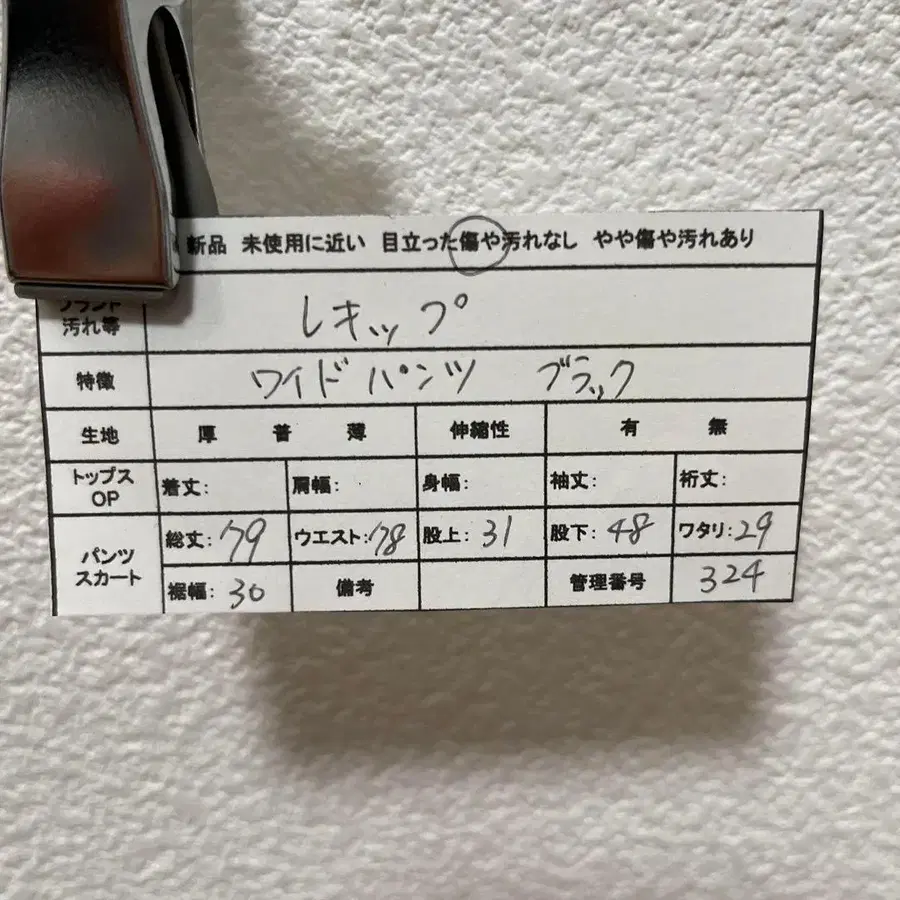 新品 未使用に近い 目立った傷や汚れなし やや傷や汚れあり
ブランド 汚れ等 レキップ
特徴 ワイドパンツ ブラック
生地 厚 普 薄 伸縮性 有 無
トップス OP 着丈: 肩幅: 身幅: 袖丈: 裄丈:
パンツ スカート 総丈:79 ウエスト:78 股上:31 股下:48 ワタリ:29
裾幅:30 備考 管理番号 324